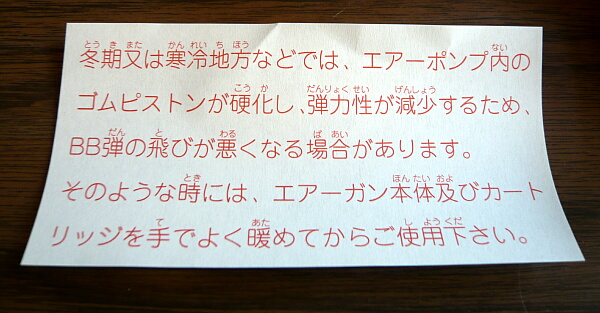 冬期又は寒冷地方などでは、エアーポンプ内の
ゴムピストンが硬化し、弾力性が減少するため、
BB弾の飛びが悪くなる場合があります。
そのような時には、エアーガン本体及びカート
リッジを手でよく暖めてからご使用下さい。